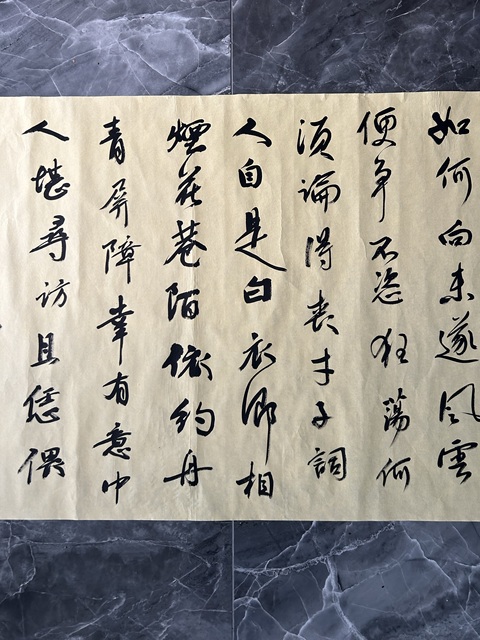 如何向未遂风雲
便争不恣狂蕩何
須論得丧才子詞
人自是白衣卿相
煙花巷陌依約丹
青屏障幸有意中
人堪尋访且恁偎